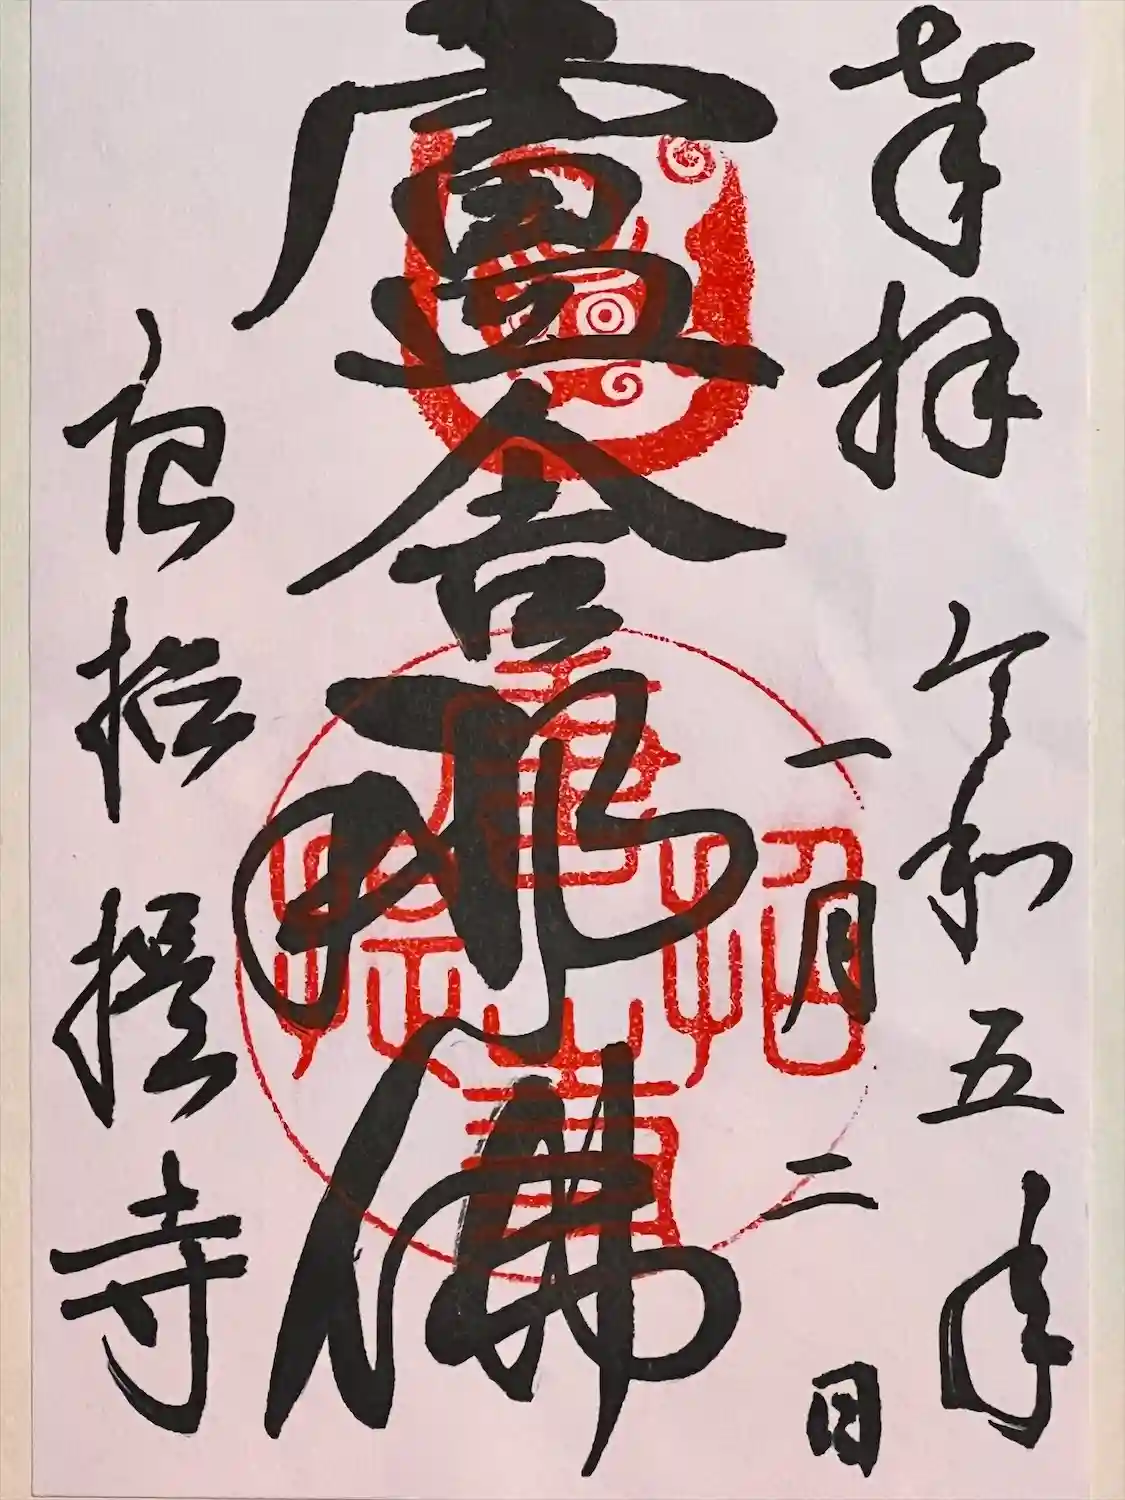 奉拝 令和五年
一月二日
盧舎那佛
唐招提寺